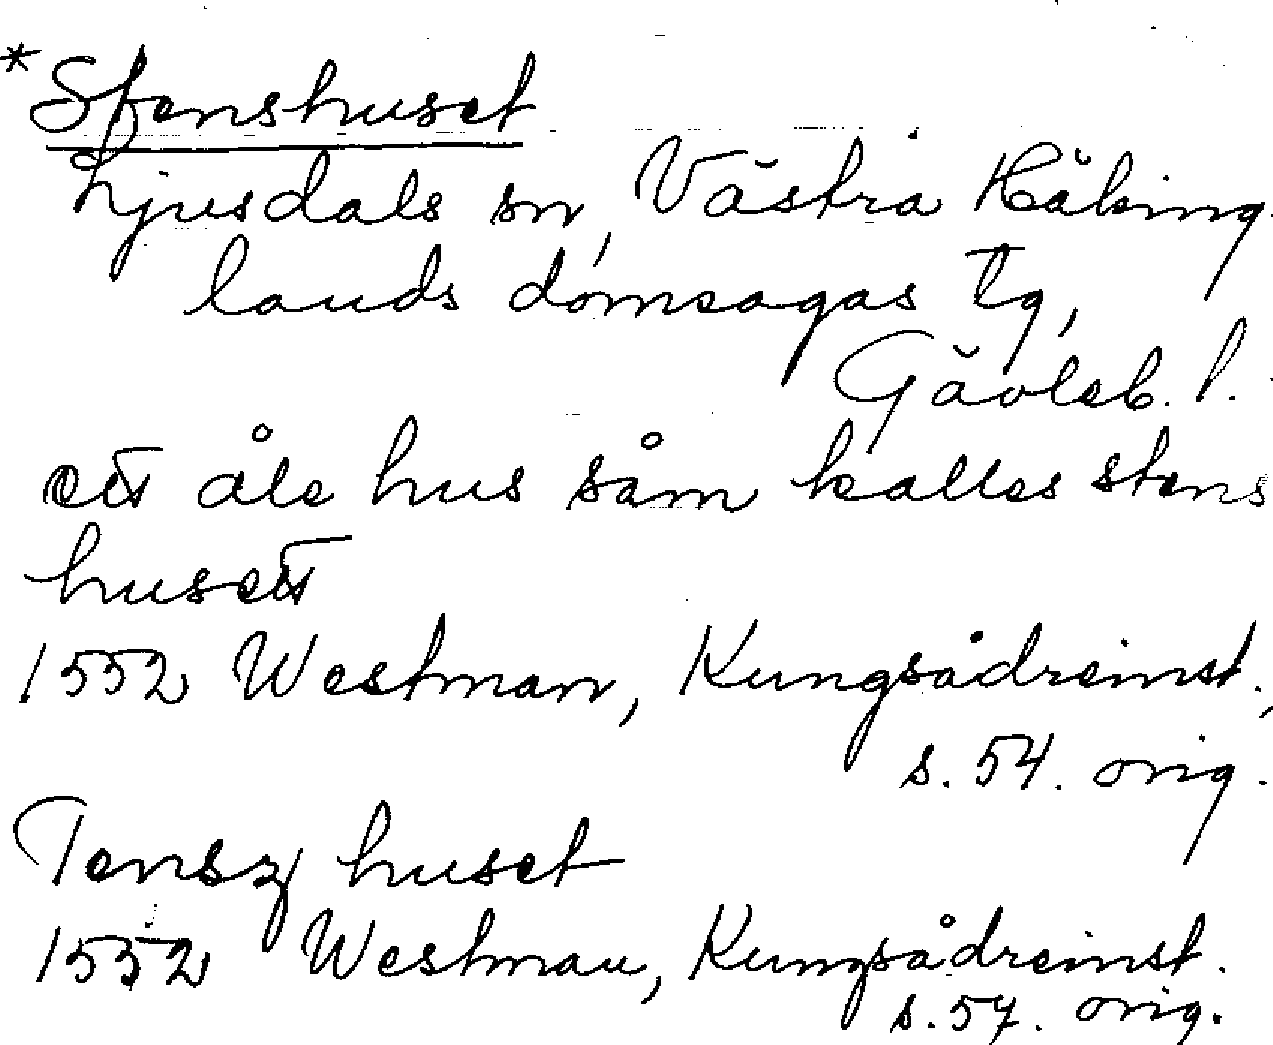 *Stenshuset
Ljusdals sn, Västra Häking-
lands domsagas tg,
Gävleb. l.
ett åle hus såm kalles stens
husett
1552 Westman, Kungsådreinst.,
s. 54. orig.
Tensz huset
1552 Westman, Kungsådreinst.
s. 57. orig.